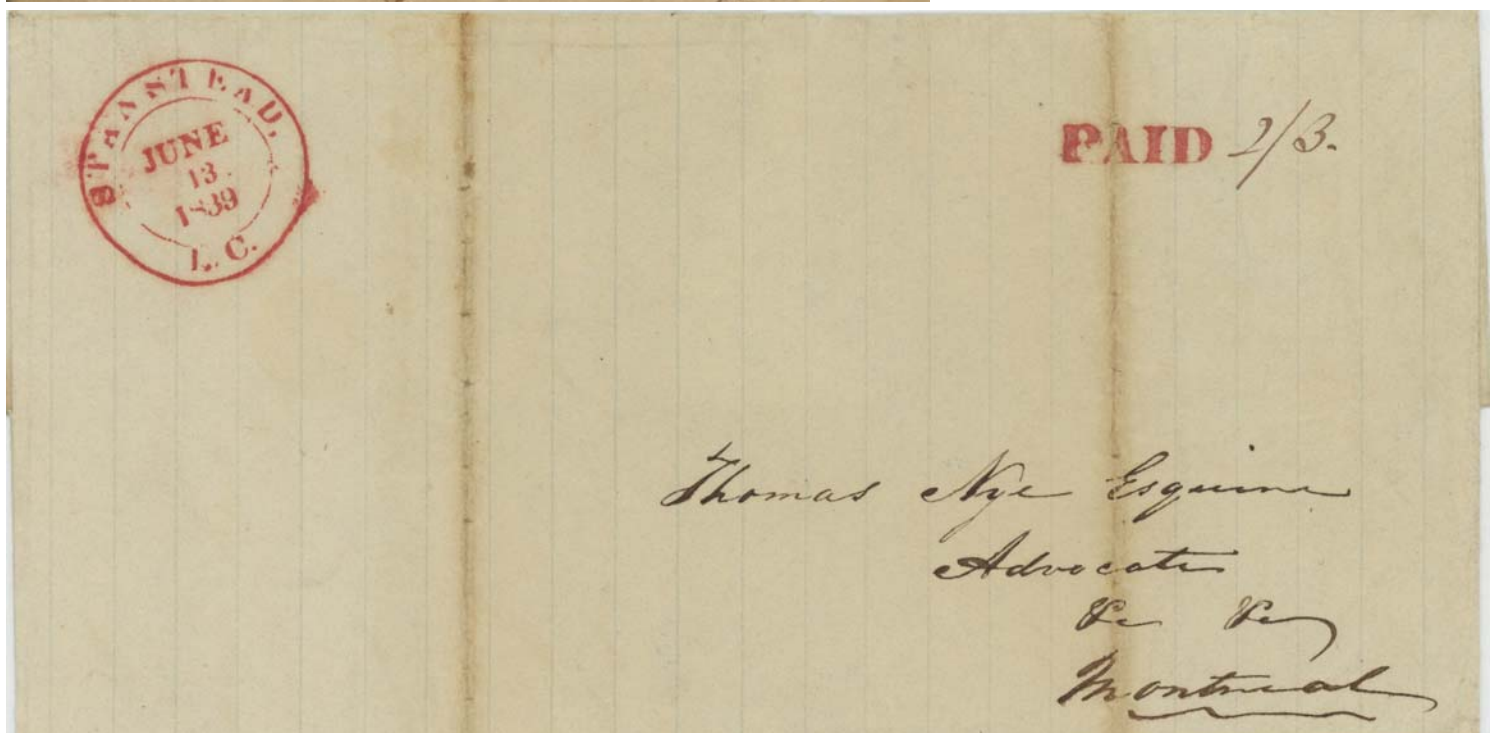 STANSTEAD,
JUNE
13
1839
L.C.
PAID 2/3.
Thomas Nye Esquire
Advocate
&c &c
Montreal